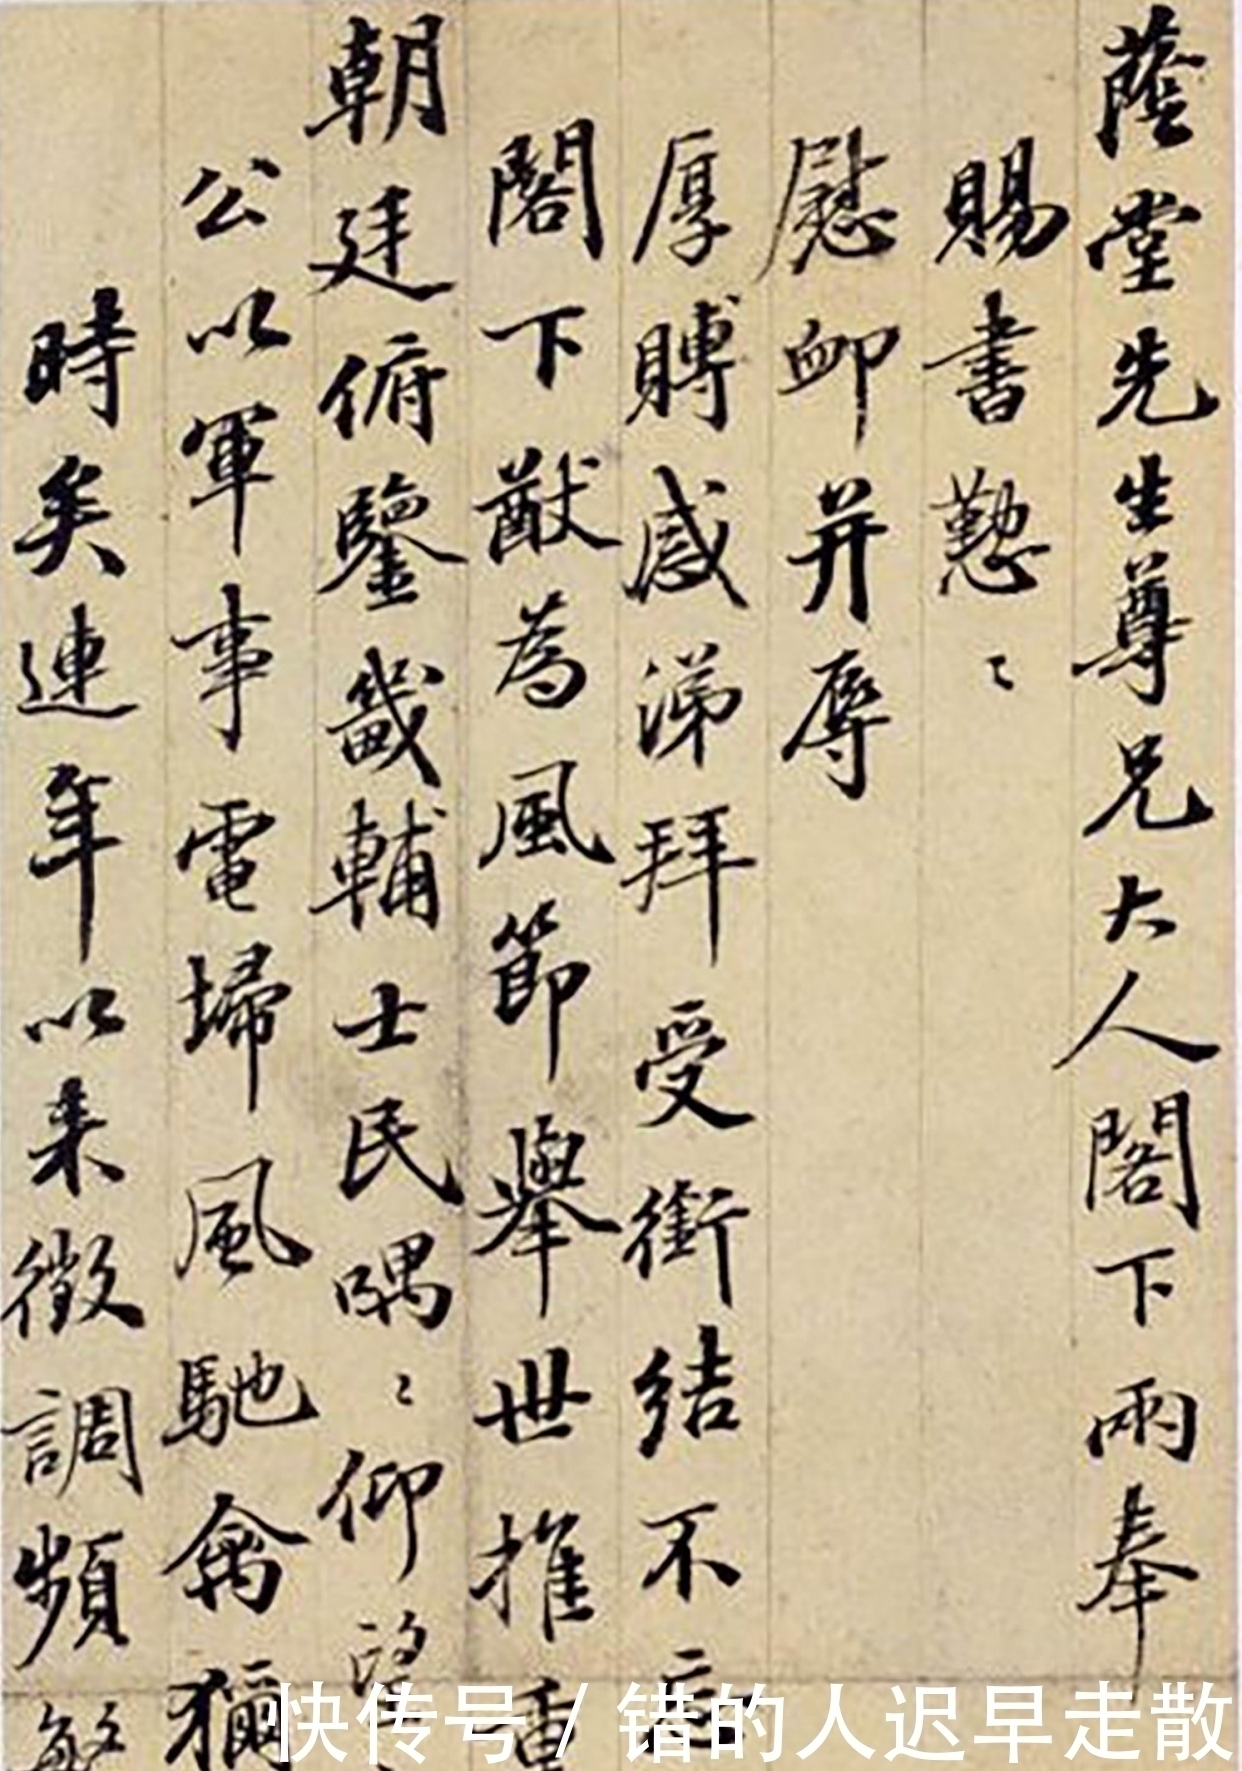 蔭堂先生尊兄大人閣下兩奉
賜書懃〻
慰卹并辱
厚賻感涕拜受銜結不忘
閣下猷為風節舉世推重
朝廷俯鑒畿輔士民喁〻仰望
公以軍事電掃風馳禽獮
時矣連年以来徵調頻繁
快传号/错的人迟早走散